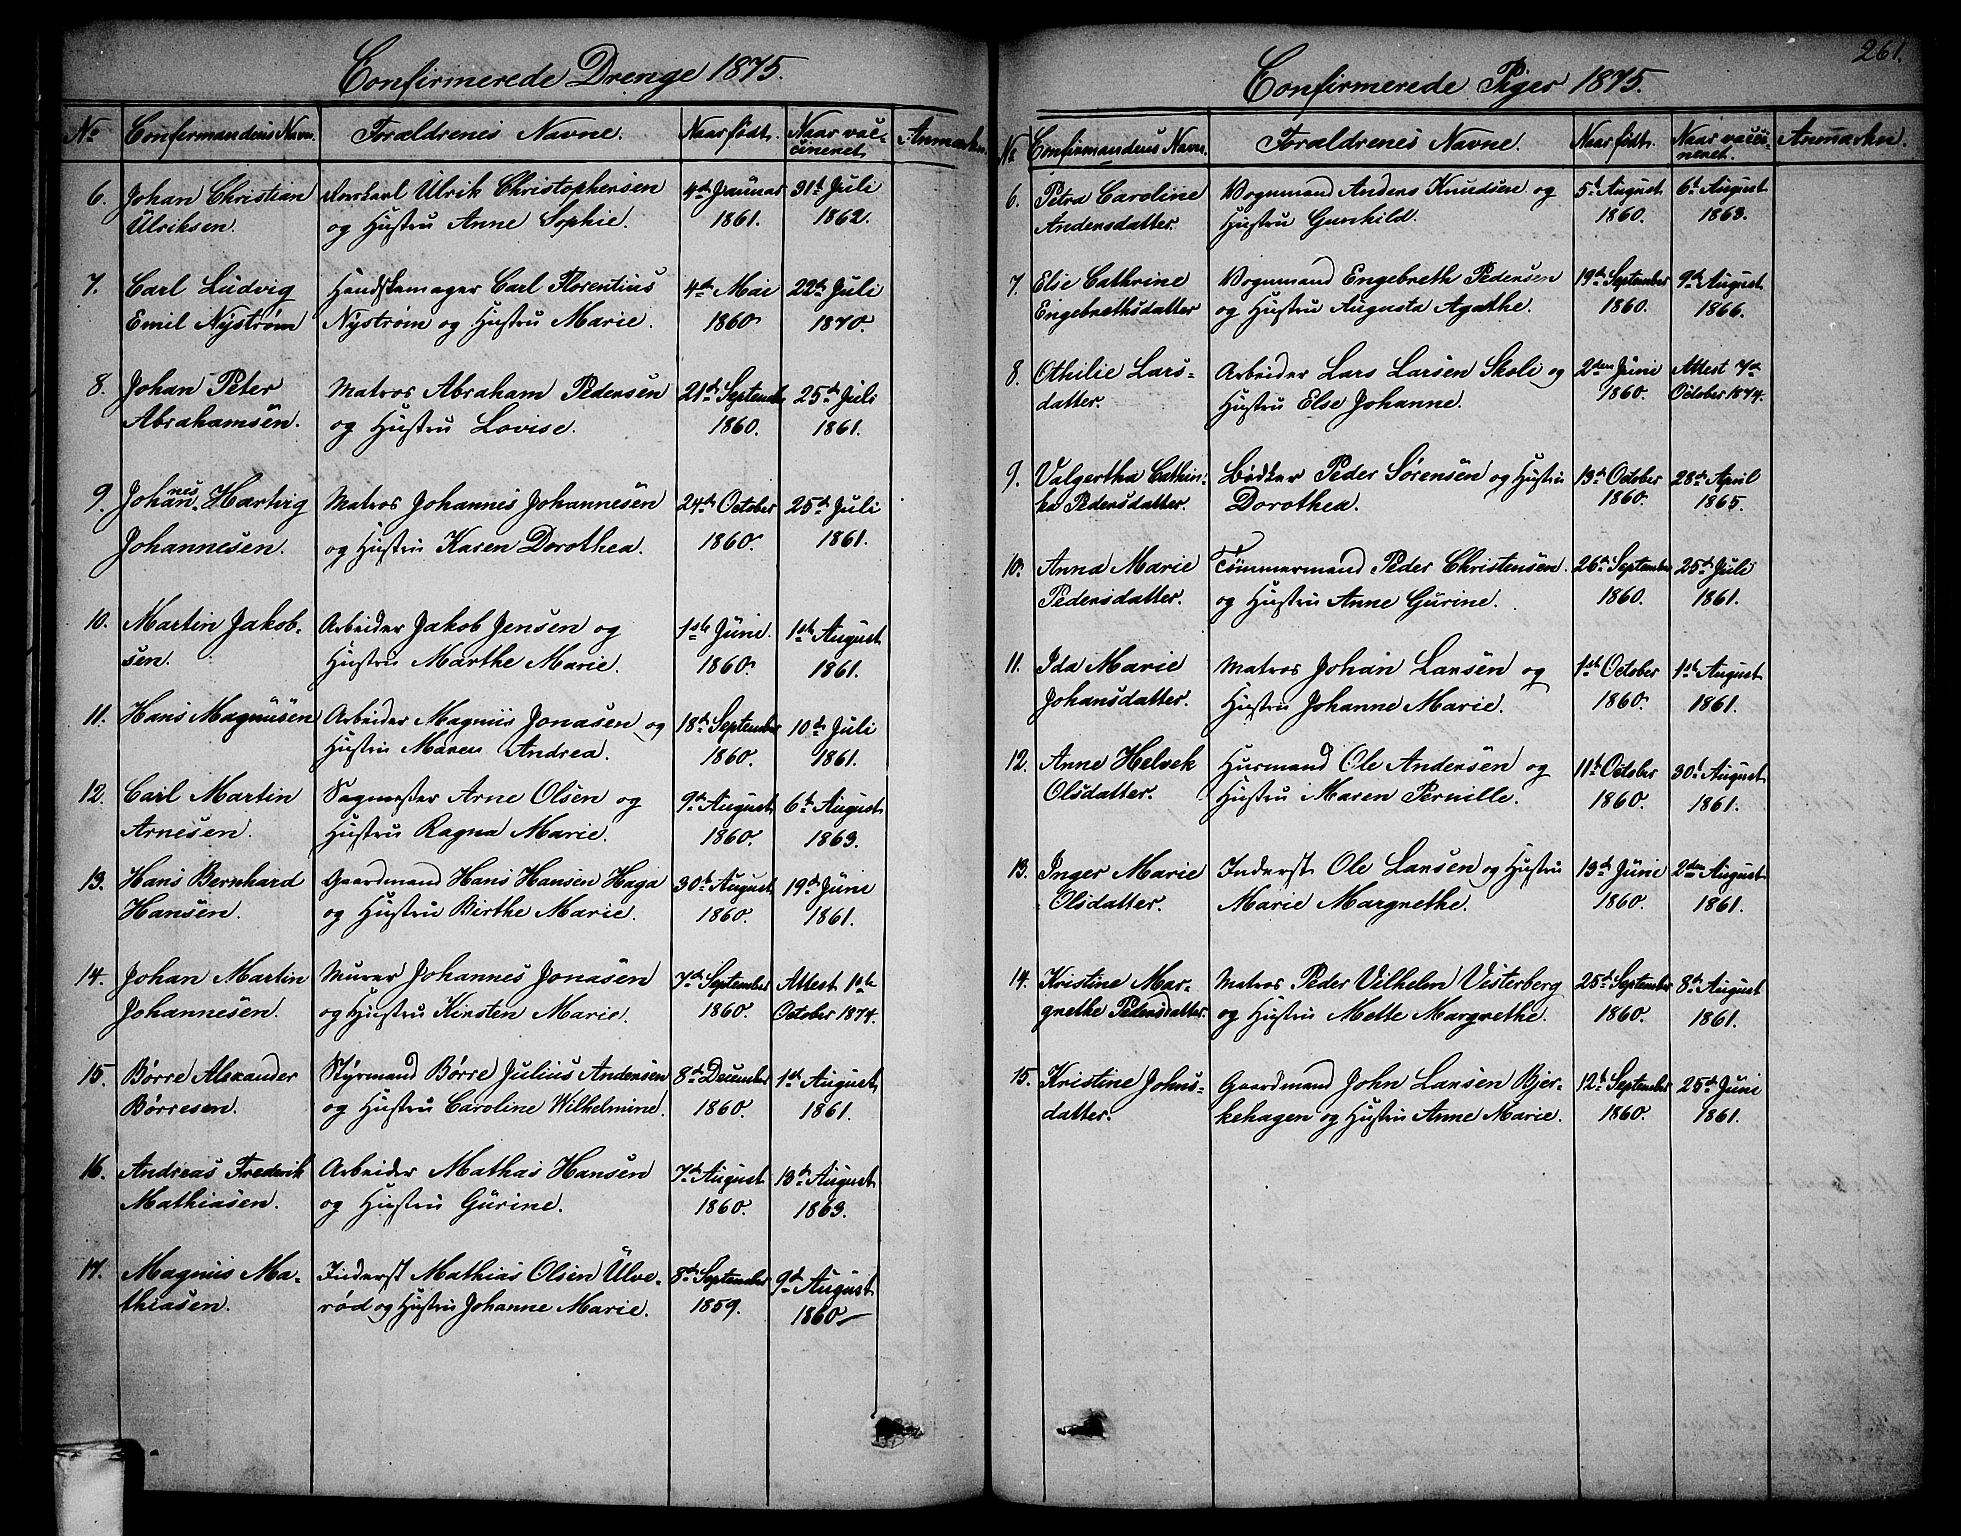 Confirmerede Drenge 1875.
No Confirmandens Navn. Forældrenes Navne. Naar født. Naar vac-
cineret Anmærkn.
6. Johan Christian Ulrik Christophersen 4de Januar 31te Juli
Ulriksen. og Hustru Anne Sophie. 1861. 1862.
7. Carl Ludvig Handskemager Carl Florentius 4de Mai 22de Juli
Emil Nystrøm Nystrøm og Hustru Marie. 1860. 1870.
8. Johan Peter Matros Abraham Pedersen 21de September 25de Juli
Abrahamsen. og Hustru Lovise. 1860. 1861.
9. Johannes Hartvig Matros Johannes Johannesen 24de October 25de Juli
Johannesen. og Hustru Karen Dorothea. 1860. 1861.
10. Martin Jakob- Arbeider Jakob Jensen og 1ste Juni. 1ste August
sen. Hustru Marthe Marie. 1860. 1861.
11. Hans Magnusen Arbeider Magnus Jonasen og 18de September 10de Juli
Hustru Maren Andrea. 1860. 1861.
12. Carl Martin Sagmester Arne Olsen og 9de August 6te August
Arnesen. Hustru Ragna Marie. 1860. 1863.
13. Hans Bernhard Gaardmand Hans Hansen Haga 30te August 19de Juni
Hansen. og Hustru Birthe Marie. 1860. 1861.
14. Johan Martin Murer Johannes Jonasen 7de September Attest 1ste
Johannesen. og Hustru Kirsten Marie. 1860. October 1874.
15. Børre Alexander Styrmand Børre Julius Andersen 8de December 1ste August
Børresen. og Hustru Caroline Wilhelmine. 1860. 1861.
16. Andreas Frederik Arbeider Mathias Hansen 7de August 13de August
Mathiasen. og Hustru Gurine. 1860. 1863.
17. Magnus Ma- Inderst Mathias Olsen Ulve- 8de September 9de August
thiasen. rød og Hustru Johanne Marie. 1859. 1860
261.
Confirmerede Piger 1875.
No Confirmandens Navn. Forældrenes Navne. Naar født. Naar vacci-
neret. Anmærkn.
6. Petra Caroline Vognmand Anders Knudsen og 5te August 6te August
Andersdatter. Hustru Gunhild. 1860. 1863.
7. Elise Cathrine Vognmand Engebreth Pedersen 19de September 9de August
Engebrethsdatter og Hustru Augusta Agathe. 1860. 1866.
8. Othilie Lars- Arbeider Lars Larsen Skoli og 2den Juni Attest 7de
datter. Hustru Else Johanne. 1860. October 1874.
9. Valgertha Cathin- Bødker Peder Sørensen og Hustru 13de October 28de April
ka Pedersdatter. Dorothea. 1860. 1865.
10. Anna Marie Tømmermand Peder Christensen. 26de September 25de Juli
Pedersdatter. og Hustru Anne Gurine. 1860. 1861.
11. Ida Marie Matros Johan Larsen og 1ste October 1ste August
Johansdatter. Hustru Johanne Marie. 1860. 1861.
12. Anne Helvek Husmand Ole Andersen og 11te October 30te August
Olsdatter. Hustru Maren Pernille. 1860. 1861.
13. Inger Marie Inderst Ole Larsen og Hustru 13de Juni 2den August
Olsdatter. Marie Margrethe. 1860. 1861.
14. Kristine Mar- Matros Peder Vilhelm Visterberg 25de September 8de August
grethe Pedersdatter. og Hustru Mette Margrethe. 1860. 1861.
15. Kristine Johns- Gaardmand John Larsen Bjer- 12te September 25de Juni
datter. kehagen og Hustru Anne Marie. 1860. 1861.